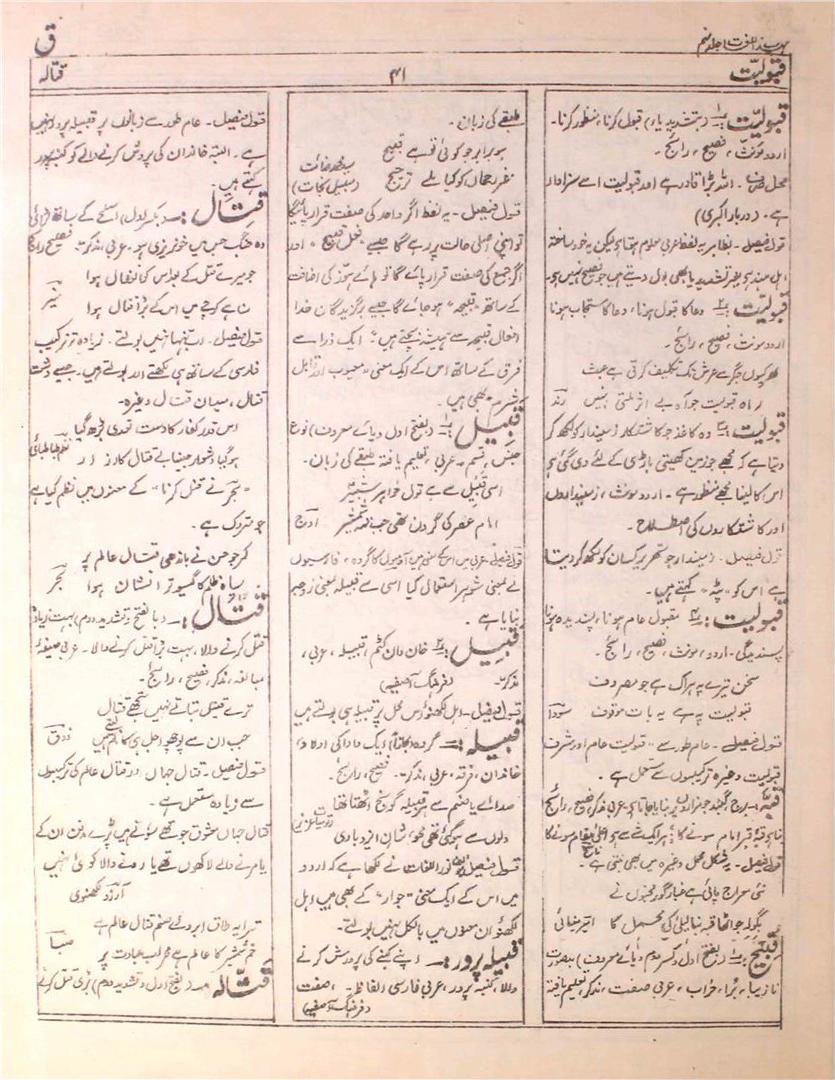 مہذب اللغات جلد نہم
ق
قبولیّت
۴۱
قتالہ
قبولیّت :۔ (بتشدید یاء) قبول کرنا، منظور کرنا۔
اردو مونث، فصیح، رائج۔
محل صرف ۔ اللہ بڑا قادر ہے اور قبولیت اسے سزاوار
ہے ۔ (دربار اکبری)
قول فیصل ۔ بظاہر یہ لفظ عربی معلوم ہوتا ہے لیکن یہ خود ساختہ
اہل ہند ہے بغیر تشدید یا بھی بول دیتے ہیں جو فصیح نہیں ہے۔
قبولیّت :۔ دعا کا قبول ہونا، دعا کا مستجاب ہونا
اردو مونث، فصیح، رائج۔
پھر کیوں جگر سے عرش تک تکلیف کرتی ہے عبث
راہ قبولیت جو آہ بے اثر ملتی نہیں رند
قبولیت :۔ وہ کاغذ جو کاشتکار زمیندار کو لکھ کر
دیتا ہے کہ مجھے جو زمین کھیتی باڑی کے لئے دی گئی ہے
اس کا لینا مجھے منظور ہے ۔ اردو مونث، زمینداروں
اور کاشتکاروں کی اصطلاح۔
قول فیصل ۔ زمیندار جو تحریر کسان کو لکھ کر دیتا
ہے اس کو "پٹہ" کہتے ہیں۔
قبولیت :۔ مقبول عام ہونا، پسندیدہ ہونا
پسندیدگی ۔ اردو، مونث، فصیح، رائج۔
سخن تیرے پہ ہر اک ہے جو مصروف
قبولیت پہ ہے یہ بات موقوف سودا
قول فیصل ۔ عام طور سے "قبولیت عام اور شرف
قبولیت وغیرہ ترکیبوں سے مستعمل ہے ۔
قبہ :۔ برج، گنبد جو مزاروں پر بنایا جاتا ہے، عربی مذکر، فصیح، رائج
قول فیصل ۔ یہ شکل محل وغیرہ میں بھی بنتی ہے ۔
نئی معراج پائی ہے غبار گور مجنوں نے
بگولہ جو اٹھا قبہ بنا لیلیٰ کی محمل کا امیر مینائی
قبیح :۔ (بفتح اول و کسر دوم و یائے معروف) بدصورت
نازیبا، برا، خراب، عربی صفت، مذکر، تعلیم یافتہ
طبقے کی زبان ۔
قول فیصل ۔ یہ لفظ اگر واحد کی صفت قرار پائیگا
تو اپنی اصلی حالت پر رہے گا جیسے "فعل قبیح" اور
اگر جمع کی صفت قرار پائے گا تو ہائے ہوّز کی اضافت
کے ساتھ "قبیحہ" ہو جائے گا جیسے برگزیدگان خدا
افعال قبیحہ سے ہمیشہ بچتے ہیں" ایک ذرا سے
فرق کے ساتھ اس کے ایک معنی "معیوب اور قابل
شرم" بھی ہیں ۔
قبیل :۔ (بفتح اول و یائے معروف) نوع
جنس، قسم ۔ عربی، تعلیم یافتہ طبقے کی زبان ۔
اسی قبیل سے ہے قول خواہر شبیر
امام عصر کی گردن تھی جب تہ شمشیر اوج
قول فیصل ۔ عربی میں اس کے معنی میں آدمیوں کا گروہ، فارسیوں
نے بمعنی شوہر استعمال کیا اسی سے قبیلہ بمعنی زوجہ
بنایا ہے ۔
قبیل :۔ خان دان کٹم، قبیلہ، عربی،
مذکر ۔ (فرہنگ آصفیہ)
قول فیصل ۔ اہل لکھنؤ اس محل پر قبیلہ ہی بولتے ہیں
قبیلہ :۔ گروہ (مجازاً) ایک دادا کی اولاد،
خاندان، فرقہ، عربی، مذکر ۔ فصیح، رائج ۔
صدائے یا صنم سے ہر قبیلہ گونج اٹھتا تھا
دلوں سے ہو گئی تھی محو شان ایزد باری
قول فیصل ۔ صاحب نور اللغات نے لکھا ہے کہ اردو
میں اس کے ایک معنی "جوار" کے بھی ہیں اہل
لکھنؤ ان معنوں میں بالکل نہیں بولتے ۔
قبیلہ پرور :۔ اپنے کنبے کی پرورش کرنے
والا، کنبہ پرور، عربی فارسی الفاظ، صفت
(فرہنگ آصفیہ)
قول فیصل ۔ عام طور سے زبانوں پر قبیلہ پرور نہیں
ہے ۔ البتہ خاندان کی پرورش کرنے والے کو کنبہ پرور
کہتے ہیں ۔
قتال :۔ (بکسر اول) اسلحے کے ساتھ لڑائی
وہ جنگ جس میں خونریزی ہو ۔ عربی، مذکر ۔ فصیح رائج
جو میرے قتل کے بعد اس کا انفعال ہوا
نہ اس کے کوچے میں اس کے پھر قتال ہوا میر
قول فیصل ۔ اب تنہا نہیں بولتے ۔ زیادہ تر ترکیب
فارسی کے ساتھ ہی لکھتے اور بولتے ہیں ۔ جیسے دشت
قتال، میدان قتال وغیرہ ۔
اس قدر کفار کا دست تعدی بڑھ گیا
"بحر نے قتل کرنا" کے معنوں میں نظم کیا ہے
جو متروک ہے ۔
کمر جو حسن نے باندھی قتال عالم پر
سپاہ ظلم کا گیسو ترا نشان ہوا بحر
قتّال :۔ (بالفتح و تشدید دوم) بہت زیادہ
قتل کرنے والا، بہت بڑا قتل کرنے والا ۔ عربی صیغۂ
مبالغہ، مذکر، فصیح، رائج ۔
ترے قتیل بتاتے نہیں تجھے قتال
جب ان سے پوچھو اجل ہی کا نام لیتے ہیں ذوق
قول فیصل ۔ قتال جہاں اور قتال عالم کی ترکیبوں
سے زیادہ مستعمل ہے ۔
قتال جہاں معشوق جو تھے سونے ہیں پڑے مرقد ان کے
یا مرنے والے لاکھوں تھے یا رونے والا کوئی نہیں
آرزو لکھنوی
تیرا یہ طاق ابروئے صنم قتال عالم ہے
خم شمشیر کا عالم ہے محراب عبادت پر صبا
قتّالہ :۔ (بفتح اول و تشدید دوم) بڑی قتل کرنے